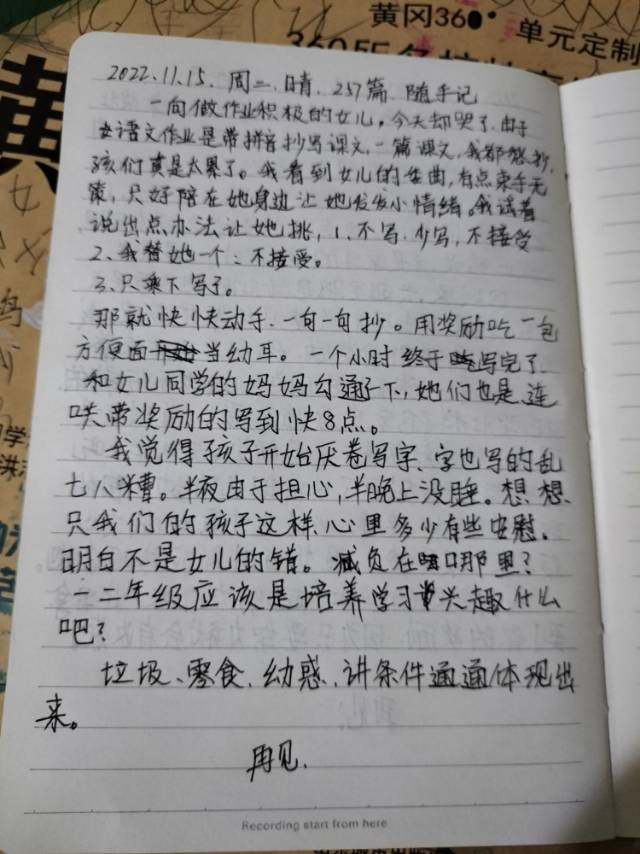 黄冈360° 单元定制
2022.11.15. 周二.晴. 257篇. 随手记
一向做作业积极的女儿，今天却哭了.由于
语文作业是带拼音抄写课文.一篇课文.我都愁抄.
孩们真是太累了。我看到女儿的委曲,有点束手无
策，只好陪在她身边让她发发小情绪。我试着
说出点办法让她挑，1、不写.少写，不接受
2、我替她一个：不接受。
3.只乘下写了。
那就快快动手.一句一句抄。用奖励吃一包
方便面当幼耳。一个小时终于写完了.
和女儿同学的妈妈勾通了下,她们也是连
哄带奖励的写到快8点。
我觉得孩子开始厌卷写字、字也写的乱
七八糟。半夜由于担心,半晚上没睡。想.想.
只我们的孩子这样.心里多少有些安慰.
明白不是女儿的错。减负在哪里？
一二年级应该是培养学习兴趣什么
吧？
垃圾、零食.幼惑.讲条件通通体现出
来。
再见.
Recording start from here